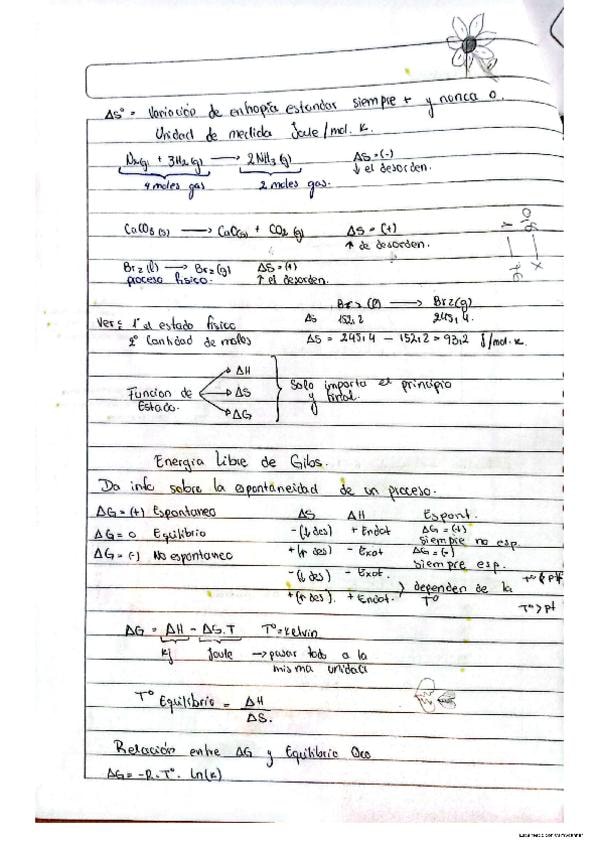 ΔS° = Variación de entropía estandar siempre + y nunca 0.
Unidad de medida Joule/mol. K.
N₂(g) + 3H₂(g) → 2NH₃(g) ΔS=(-)
↓ el desorden.
4 moles gas 2 moles gas.
CaCO₃(s) → CaO(s) + CO₂(g) ΔS = (+)
↑ de desorden.
0,8 — x
1 — 76
Br₂(l) → Br₂(g) ΔS=(+)
proceso fisico. ↑ el desorden.
Br₂(l) → Br₂(g)
Ver: 1° el estado fisico ΔS 152,2 245,4.
2° Cantidad de moles ΔS = 245,4 − 152,2 = 93,2 J/mol.K.
Funcion de Estado. ΔH ΔS ΔG Solo importa el principio y final.
Energia Libre de Gibs.
Da info sobre la espontaneidad de un proceso.
ΔG = (+) Espontaneo ΔS ΔH Espont.
ΔG = 0 Equilibrio -(↓ des) + Endot ΔG = (+) siempre no esp.
ΔG = (-) No espontaneo +(↑ des) - Exot ΔG = (-) siempre esp.
-(↓ des) - Exot.
+(↑ des). + Endot. dependen de la T°
T° > Pf
ΔG = ΔH − ΔS.T T°=Kelvin
Kj Joule → pasar todo a la misma unidad
T° Equilibrio = ΔH
ΔS.
Relación entre ΔG y Equilibrio
ΔG = -R.T°. ln(K)